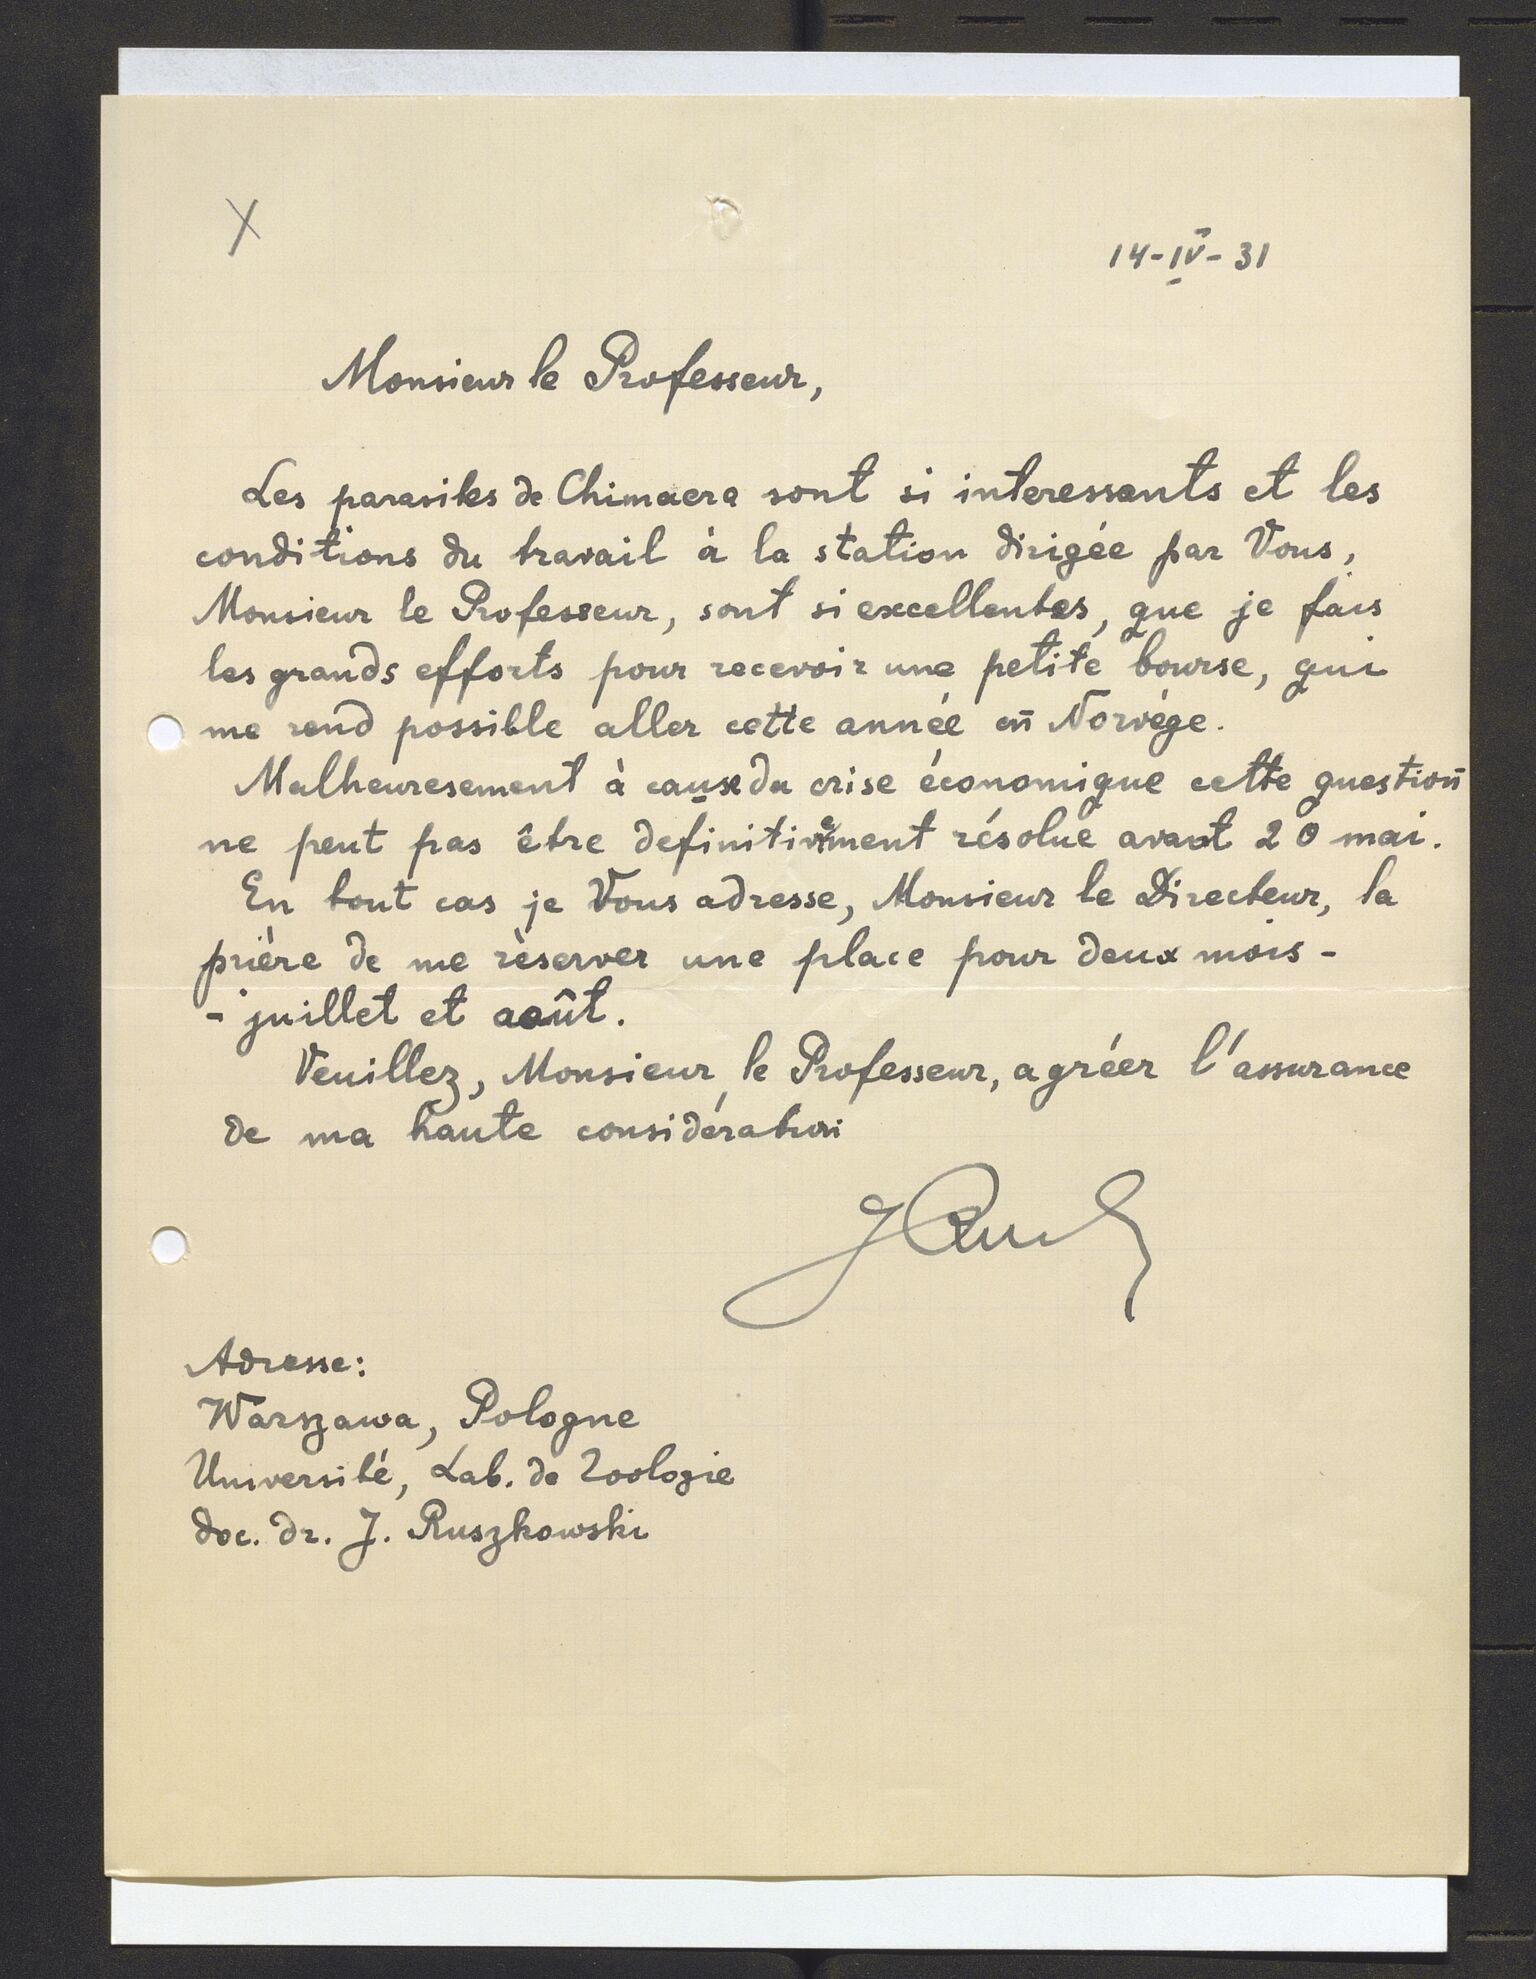 X
14-IV-31
Monsieur le Professeur,
Les parasites de Chimaera sont si interessants et les
conditions du travail à la station dirigée par Vous,
Monsieur le Professeur, sont si excellentes, que je fais
les grands efforts pour recevoir une petite bourse, qui
me rend possible aller cette année en Norvège.
Malheuresement à cause du crise économique cette question
ne peut pas être definitivement résolue avant 20 mai.
En tout cas je Vous adresse, Monsieur le Directeur, la
prière de me rèserver une place pour deux mois -
- juillet et août.
Veuillez, Monsieur le Professeur, agréer l'assurance
de ma haute considération
J Rusz
Adresse:
Warszawa, Pologne
Université, Lab. de Zoologie
doc. dr. J. Ruszkowski